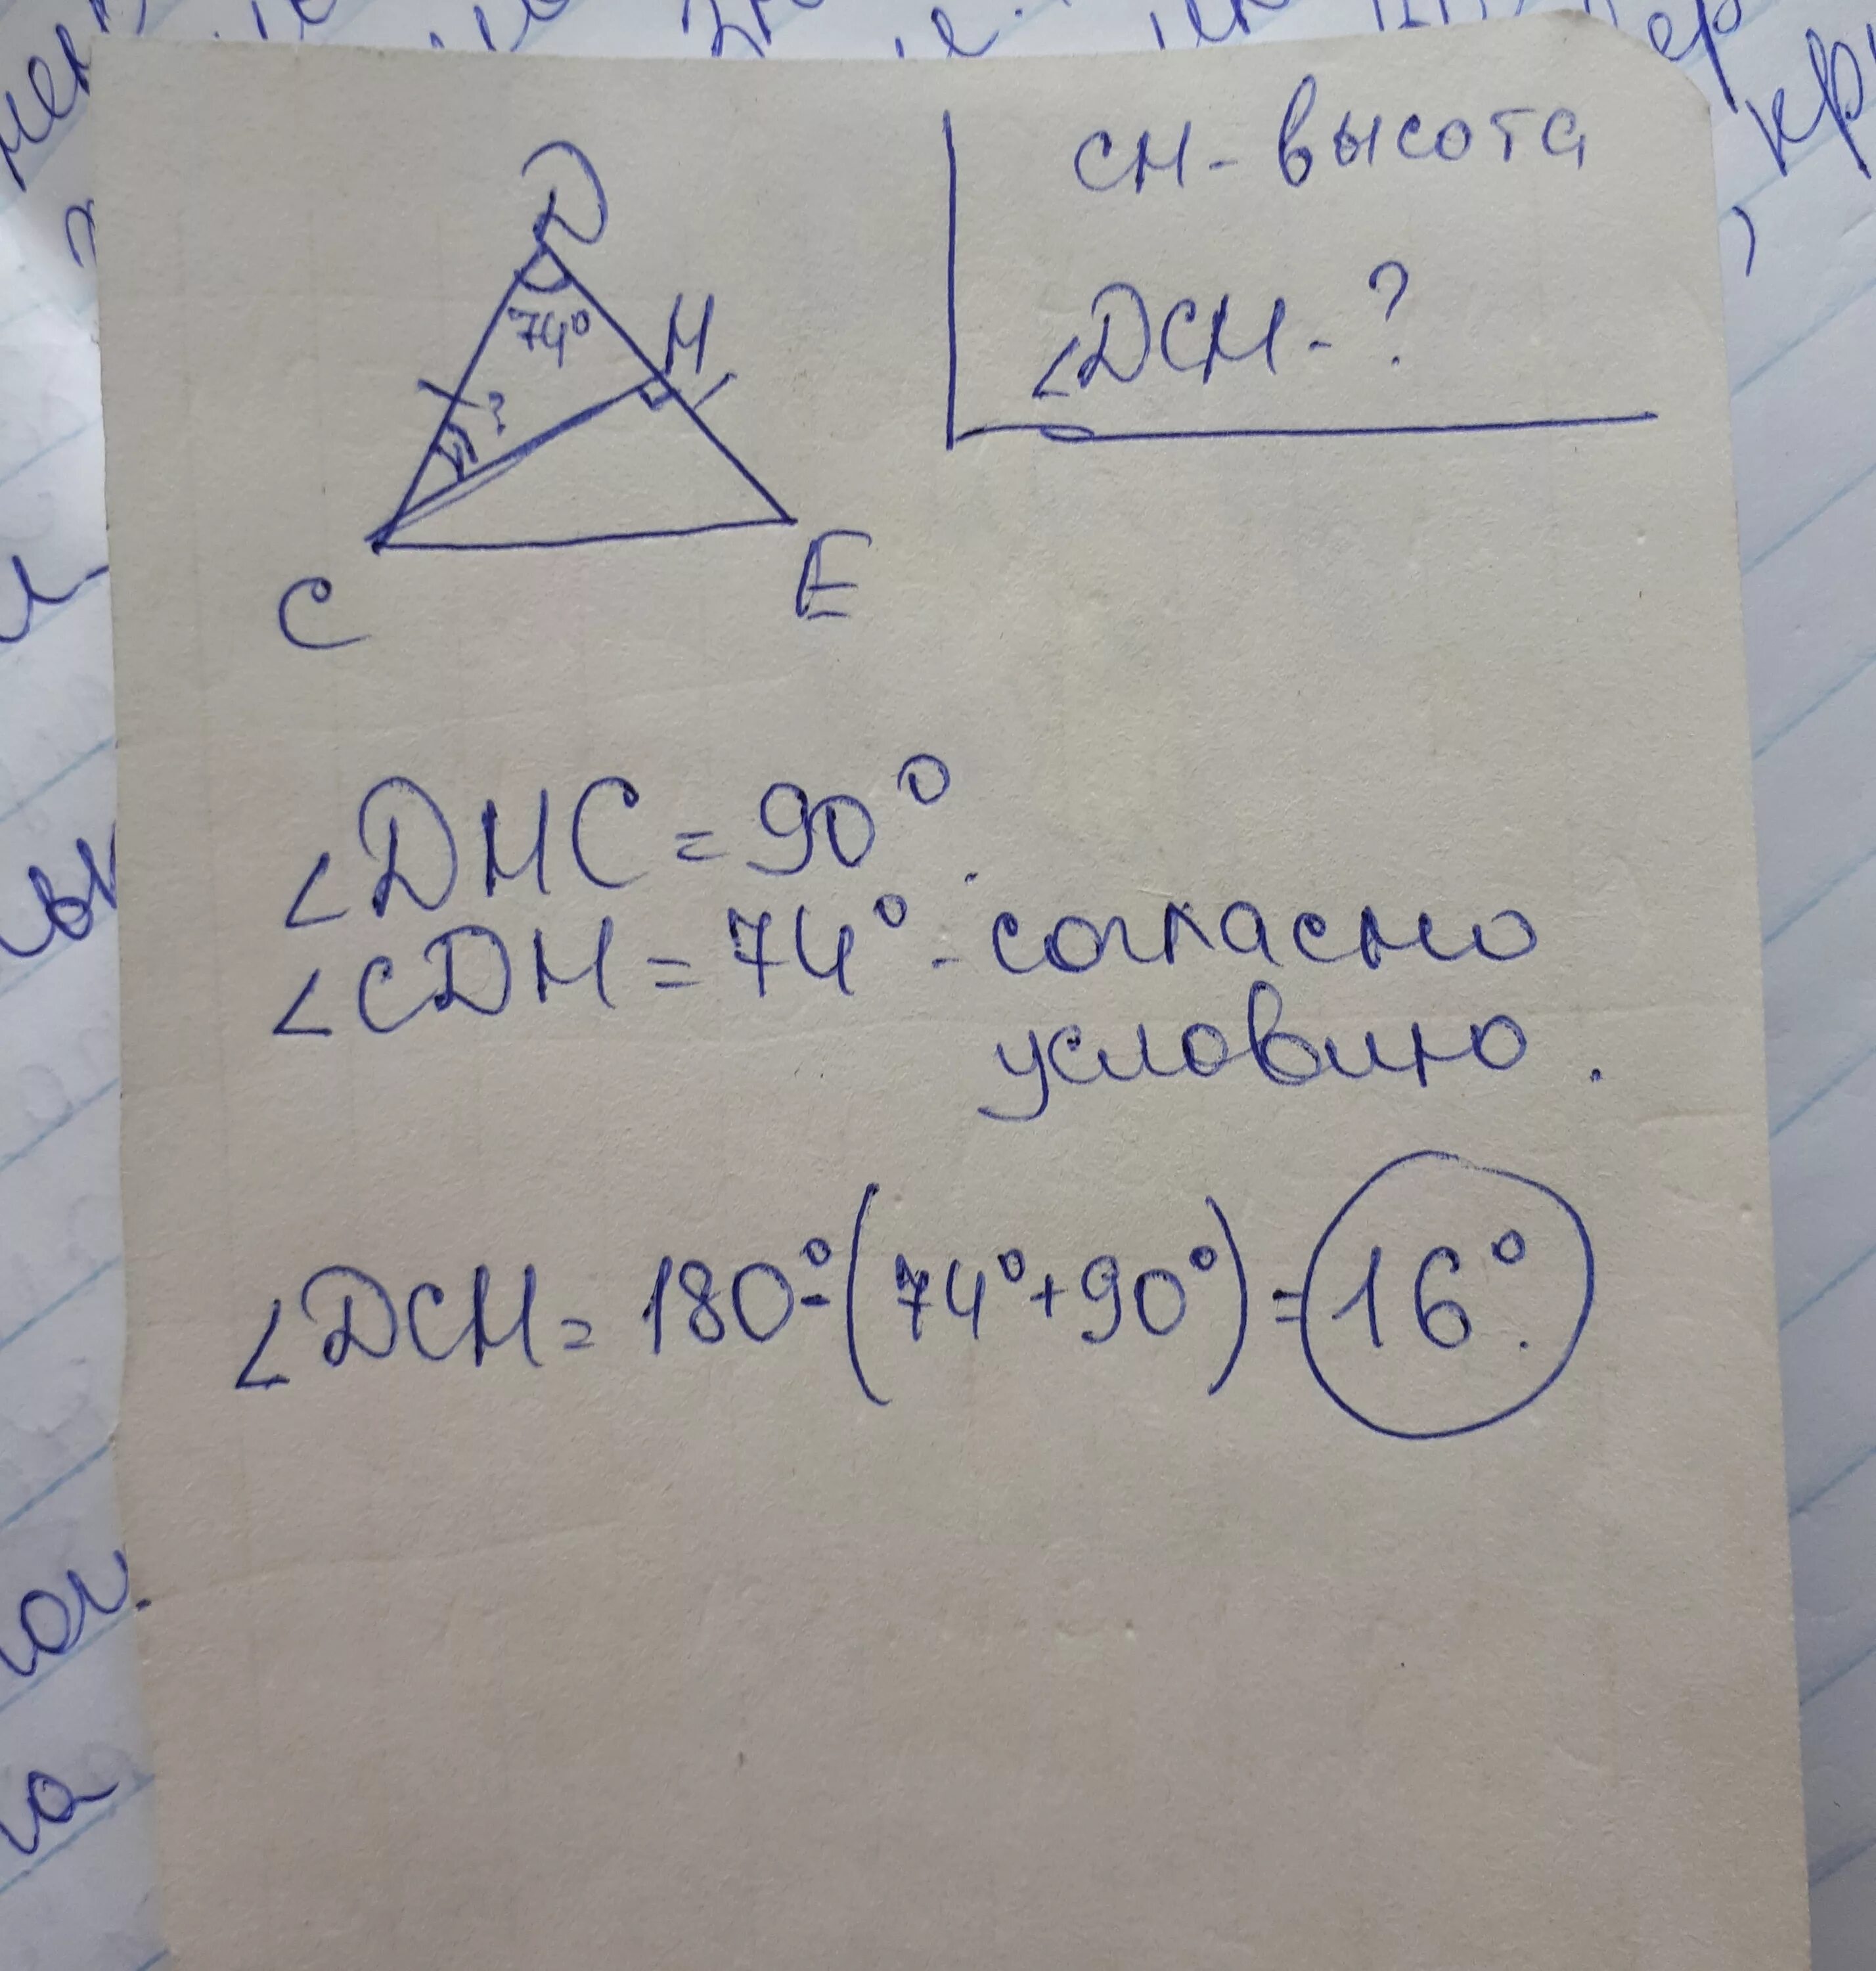 D
74°
H
?
C
E
CH - высота
∠DCH - ?
∠DHC = 90°.
∠CDH = 74° - согласно
условию.
∠DCH = 180° - (74° + 90°) = 16°.